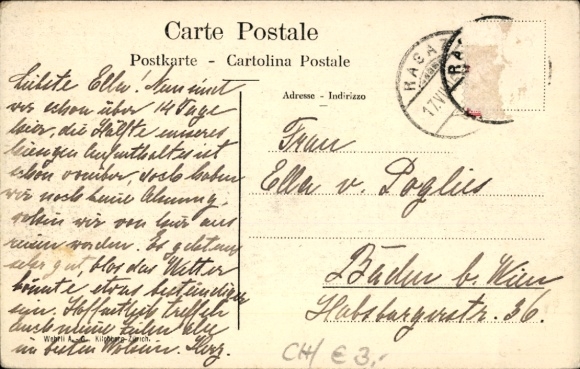 Carte Postale
Postkarte - Cartolina Postale
Adresse - Indirizzo
Liebste Ella! Nun sind
wir schon über 14 Tage
hier, die Hälfte unseres
hiesigen Aufenthaltes ist
schon vorüber, doch haben
wir noch keine Ahnung,
wohin wir von hier aus
reisen werden. Es geht uns
sehr gut, blos das Wetter
könnte etwas beständiger
sein. Hoffentlich treffen
doch meine Zeilen
im besten Wohlsein. Herz.
Frau
Ella v. Poglies
Baden b. Wien
Habsburgerstr. 36.
RAGAZ
17.VII
RA
Wehrli A.-G. Kilchberg-Zürich.
CH/ € 3,-